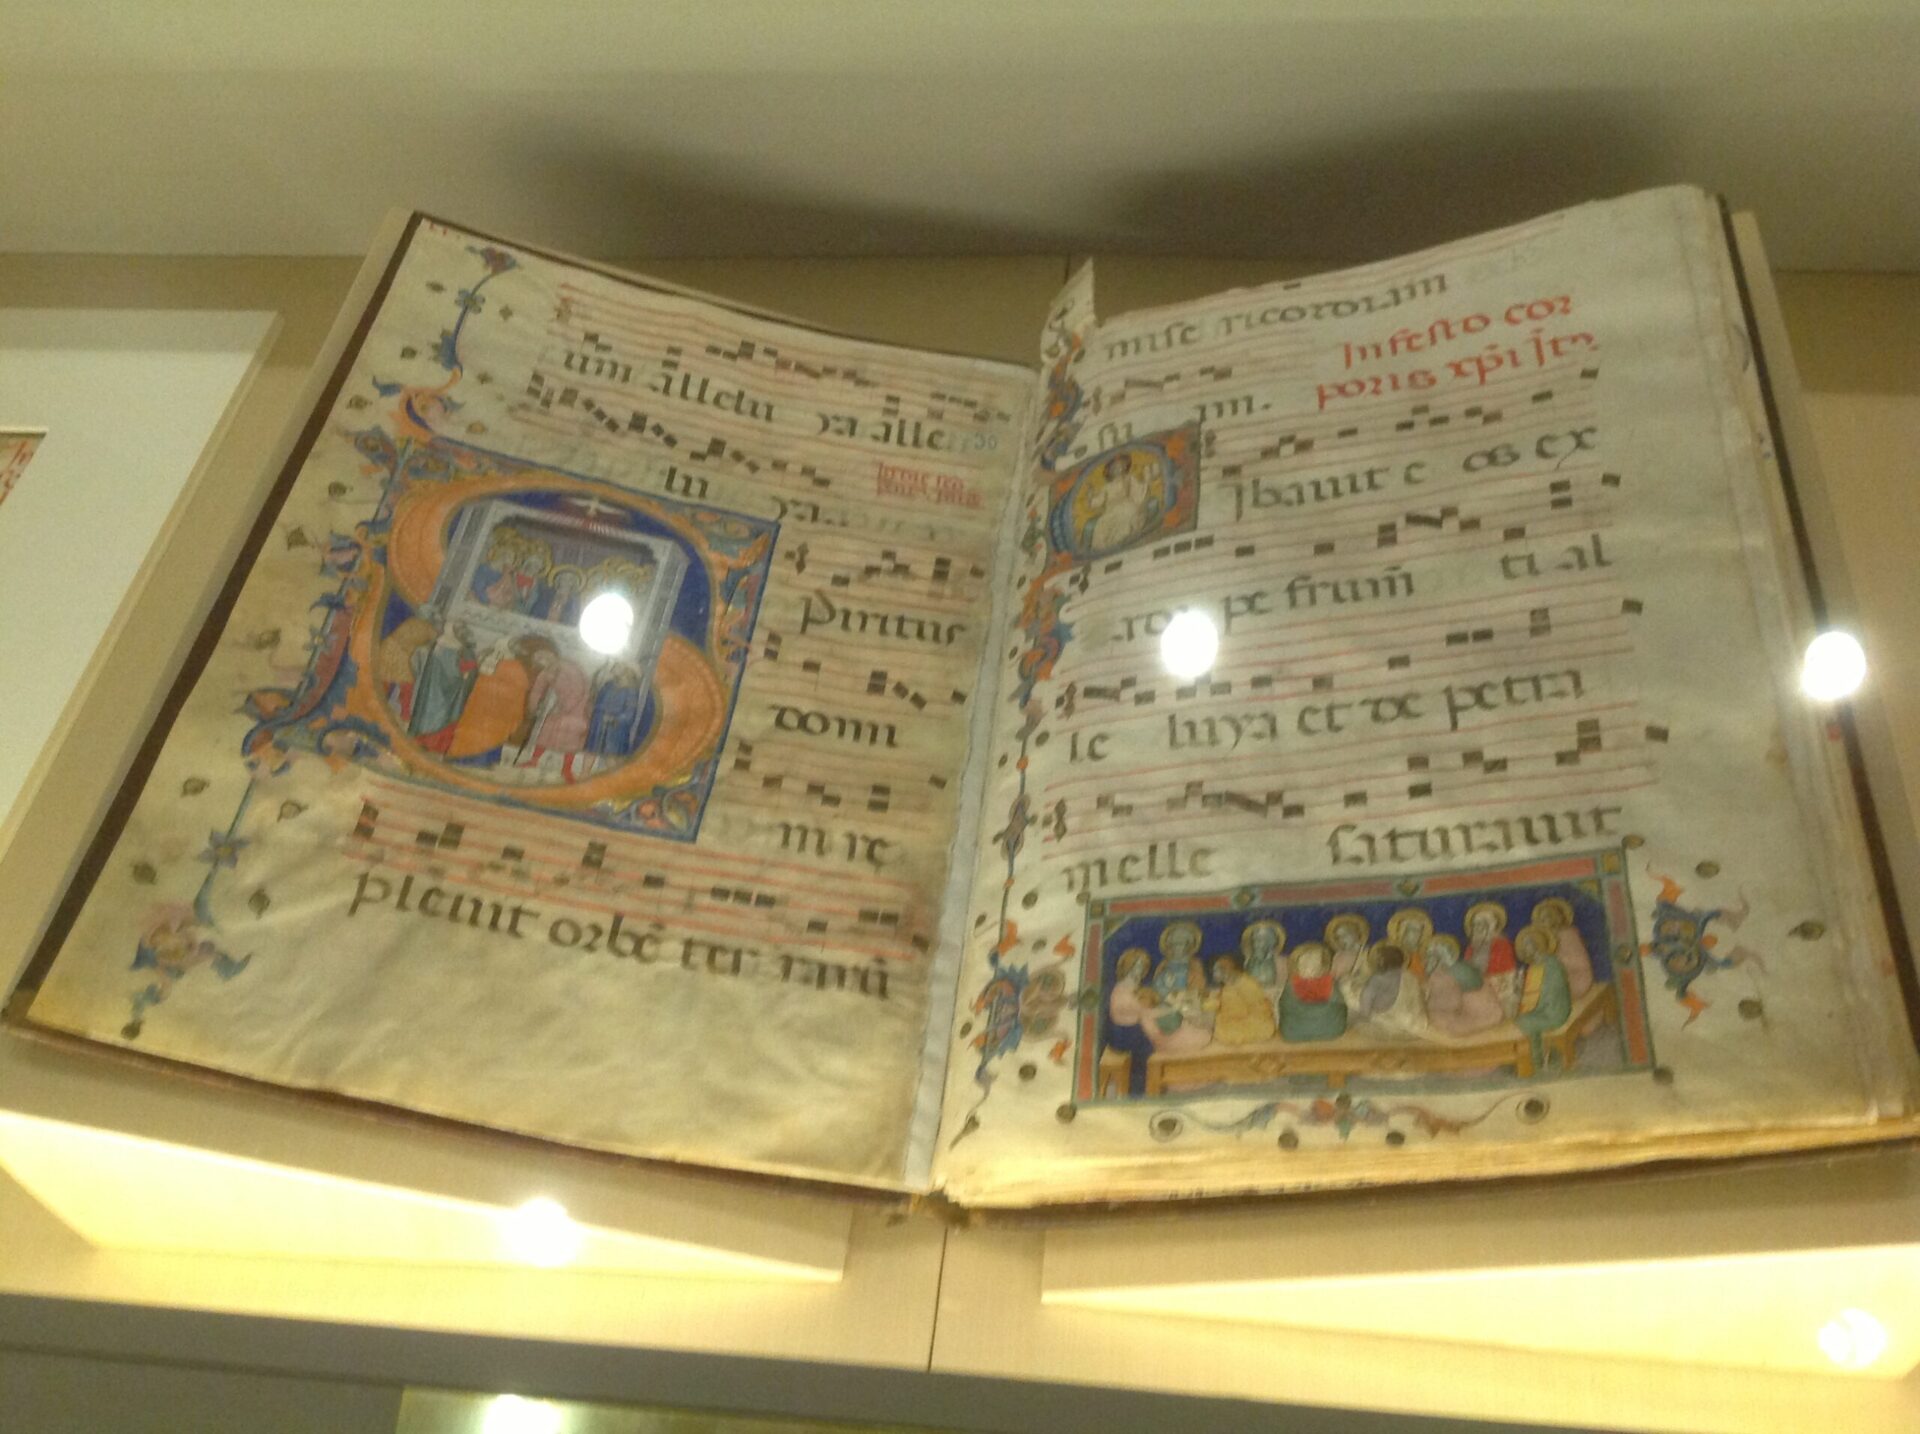 um alleluya alle
lu ya
piritus
domi
ni re
pleuit orbē ter rarū
misericordiam
In festo cor
poris xp̄i Jt
su im.
Cibauit e os ex
pe frum̄ ti al
le luya et de petra
melle saturauit